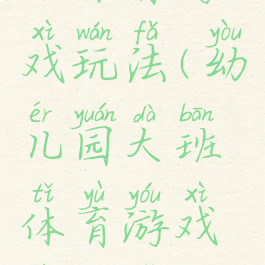 xì wán fǎ yòu
戏玩法(幼
ér yuán dà bān
儿园大班
tǐ yù yóu xì
体育游戏